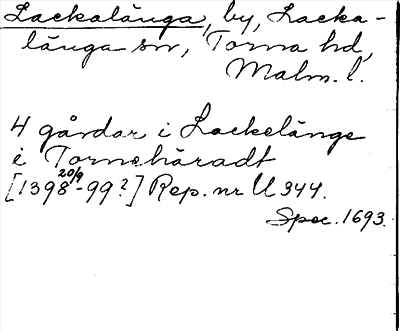 Lackalänga, by, Lacka-
länga sn, Torna hd,
Malm. l.
4 gårdar i Lackelänge
i Torneháradt
[1398 20/9 -99?] Rep. nr U 344.
Spec. 1693.